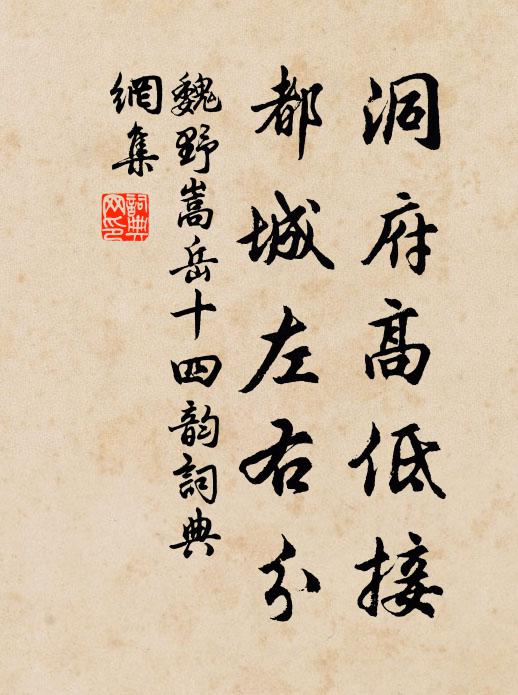 洞府高低接
都城左右分
魏野嵩岳十四韵詞典
網集
詞典網印